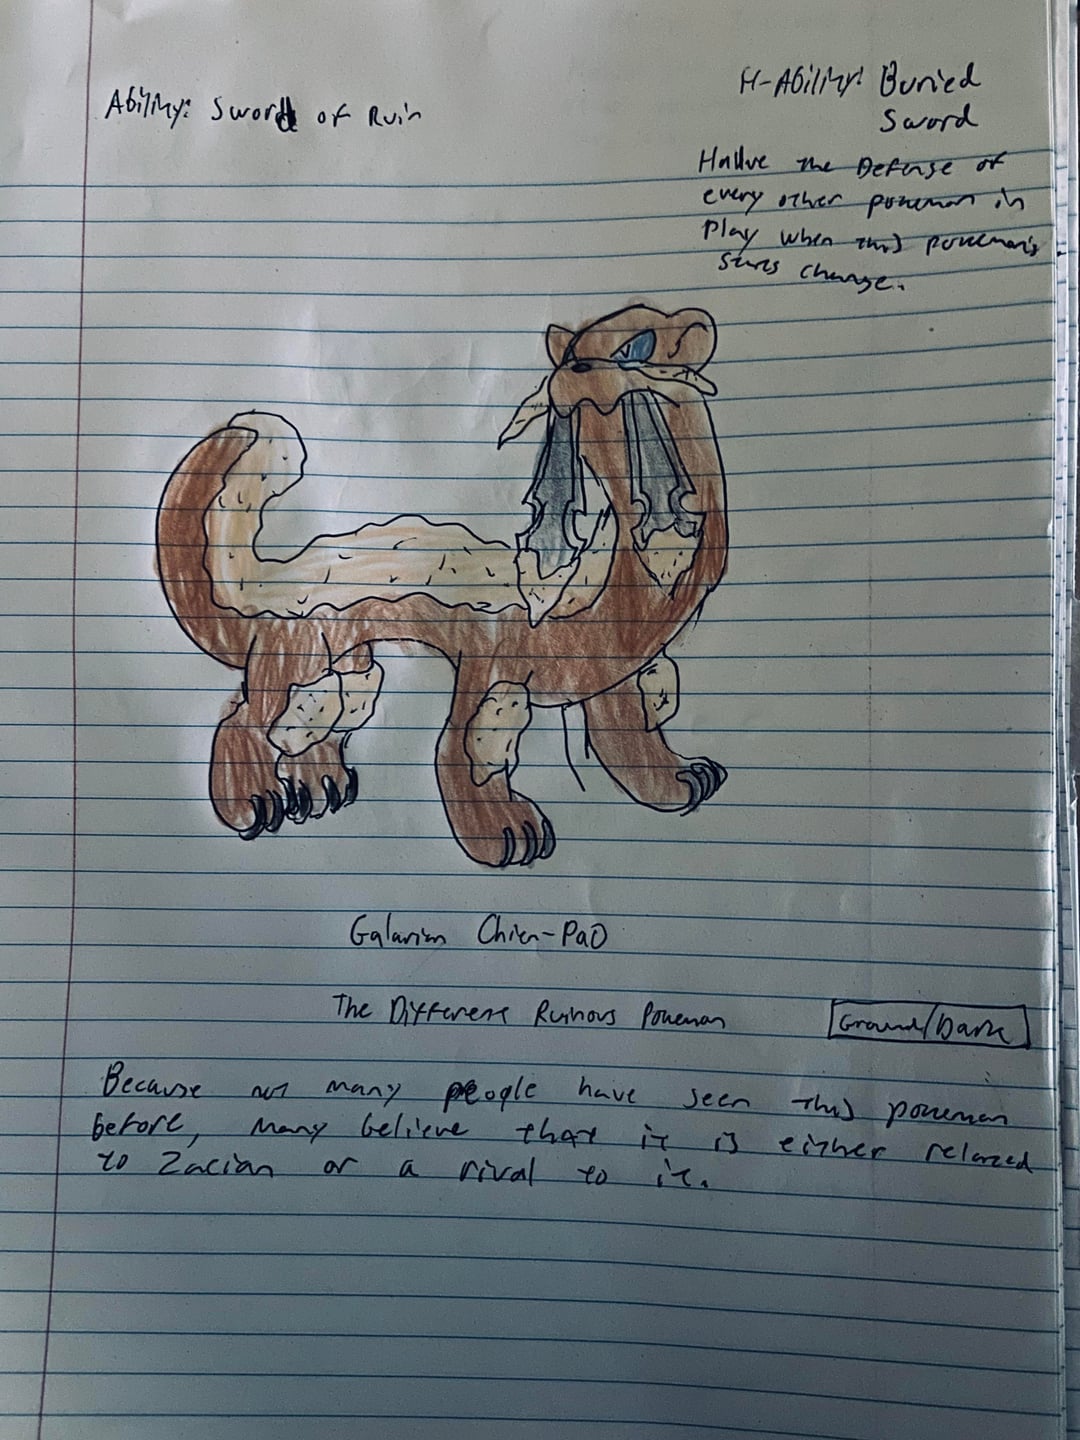 Ability: Sword of Ruin
H-Ability: Buried
Sword
Hallve the Defense of
every other pokemon in
Play when this pokemon's
stats change.
Galarian Chien-Pao
The Different Ruinous Pokemon
Ground/Dark
Because not many people have seen this pokemon
before, many believe that it is either related
to Zacian or a rival to it.